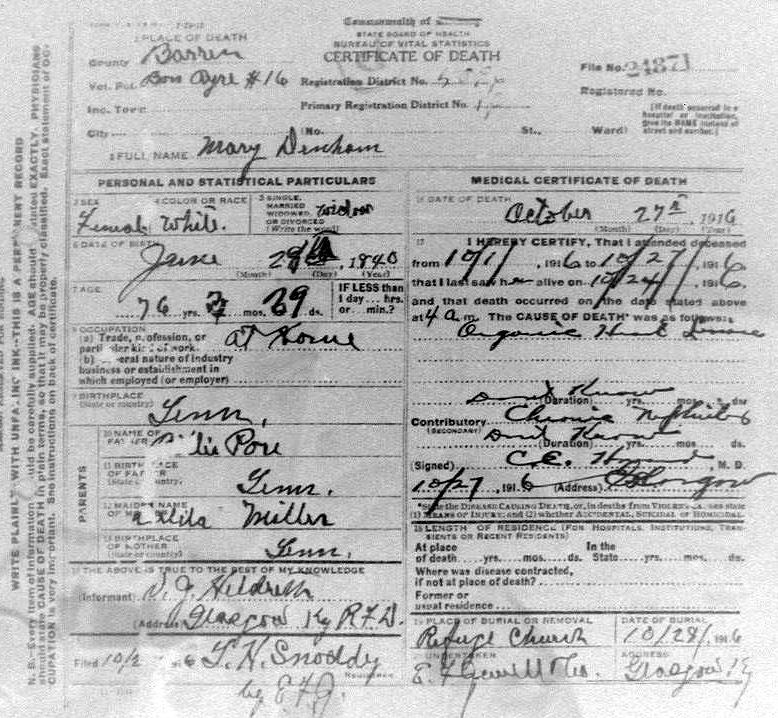 Commonwealth of
STATE BOARD OF HEALTH
BUREAU OF VITAL STATISTICS
CERTIFICATE OF DEATH
1 PLACE OF DEATH
County Barren
Vot. Pct. Bon Ayre #16
Inc. Town
City
Registration District No.
Primary Registration District No.
(No. St., Ward)
File No. 24871
Registered No.
[If death occurred in a
hospital or institution,
give its NAME instead of
street and number.]
2 FULL NAME Mary Denham
PERSONAL AND STATISTICAL PARTICULARS
3 SEX Female
4 COLOR OR RACE White.
5 SINGLE, MARRIED WIDOWED OR DIVORCED (Write the word) Widow
6 DATE OF BIRTH
June 29th, 1840
(Month) (Day) (Year)
7 AGE
76 yrs. mos. 29 ds.
IF LESS than
1 day ... hrs.
or ... min.?
8 OCCUPATION
(a) Trade, profession, or
particular kind of work. At Home
(b) General nature of industry
business or establishment in
which employed (or employer)
9 BIRTHPLACE
(State or country) Tenn,
PARENTS
10 NAME OF
FATHER Pore
11 BIRTHPLACE
OF FATHER
(State or Country) Tenn.
12 MAIDEN NAME
OF MOTHER Miller
13 BIRTHPLACE
OF MOTHER
(State or country) Tenn,
THE ABOVE IS TRUE TO THE BEST OF MY KNOWLEDGE
(Informant) Hildreth
(Address) Glasgow Ky R.F.D.
Filed 10/2 6 Snoddy
by
MEDICAL CERTIFICATE OF DEATH
16 DATE OF DEATH
October 27th, 1916
(Month) (Day) (Year)
17 I HEREBY CERTIFY, That I attended deceased
from 10/1/, 1916 to 10/27/, 1916
that I last saw her alive on 10/24/, 1916
and that death occurred on the date stated above
at 4 a m. The CAUSE OF DEATH* was as follows:
Organic Heart Disease
Dont Know
(Duration) yrs. mos. ds.
Contributory Chronic Nephritis
(SECONDARY)
Dont Know
(Duration) yrs. mos. ds.
(Signed) C.E. M. D.
10/27, 1916 (Address) Glasgow
*State the DISEASE CAUSING DEATH, or, in deaths from VIOLENT CAUSES, state
(1) MEANS OF INJURY; and (2) whether ACCIDENTAL, SUICIDAL or HOMICIDAL.
18 LENGTH OF RESIDENCE (FOR HOSPITALS, INSTITUTIONS, TRANSIENTS OR RECENT RESIDENTS)
At place In the
of death yrs. mos. ds. State yrs. mos. ds.
Where was disease contracted,
if not at place of death?
Former or
usual residence
19 PLACE OF BURIAL OR REMOVAL
Refuge Church
DATE OF BURIAL
10/28/, 1916
UNDERTAKER
ADDRESS
Glasgow Ky
WRITE PLAINLY WITH UNFADING INK--THIS IS A PERMANENT RECORD
N. B.--Every item of information should be carefully supplied. AGE should be stated EXACTLY. PHYSICIANS
should state CAUSE OF DEATH in plain terms, so that it may be properly classified. Exact statement of OC-
CUPATION is very important. See instructions on back of certificate.